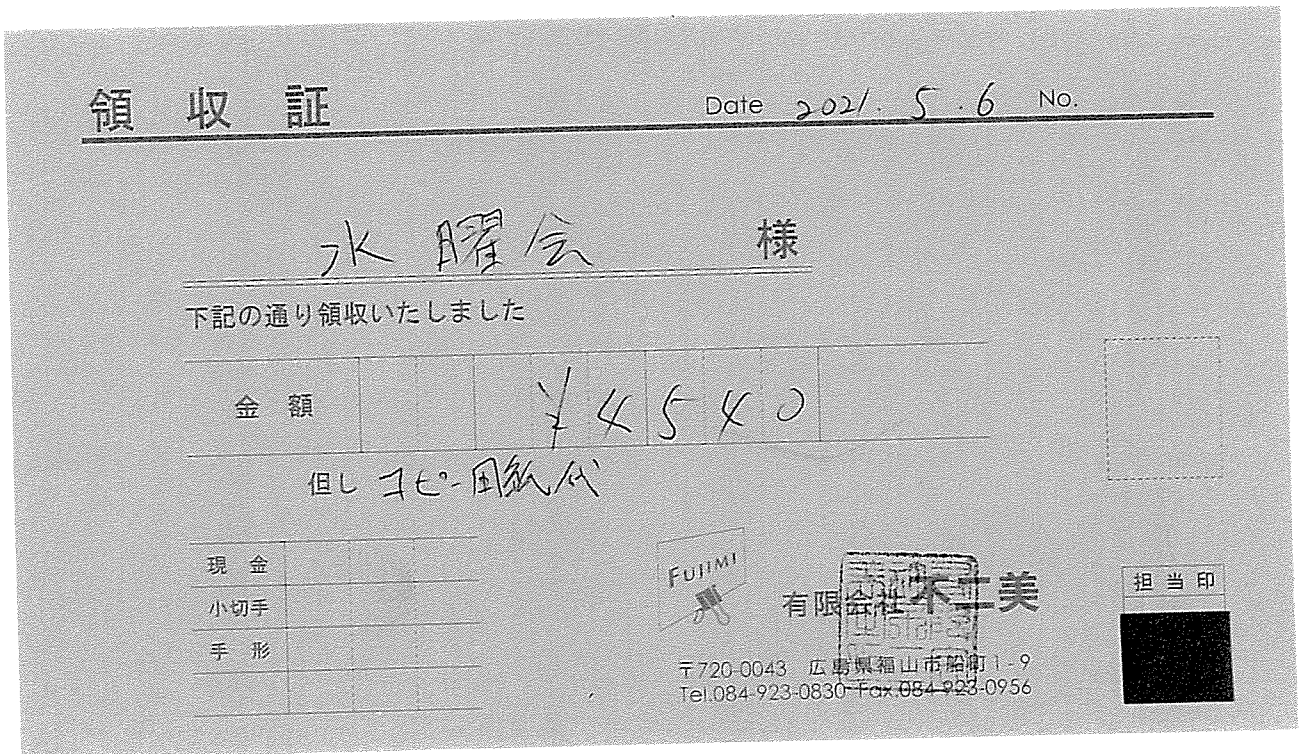 領収証 Date 2021.5.6 No.
水曜会 様
下記の通り領収いたしました
金額 ¥4540
但し コピー用紙代
現金
小切手
手形
FUJIMI
有限会社 不二美
担当印
〒720-0043 広島県福山市船町1-9
Tel.084-923-0830 Fax.084-923-0956